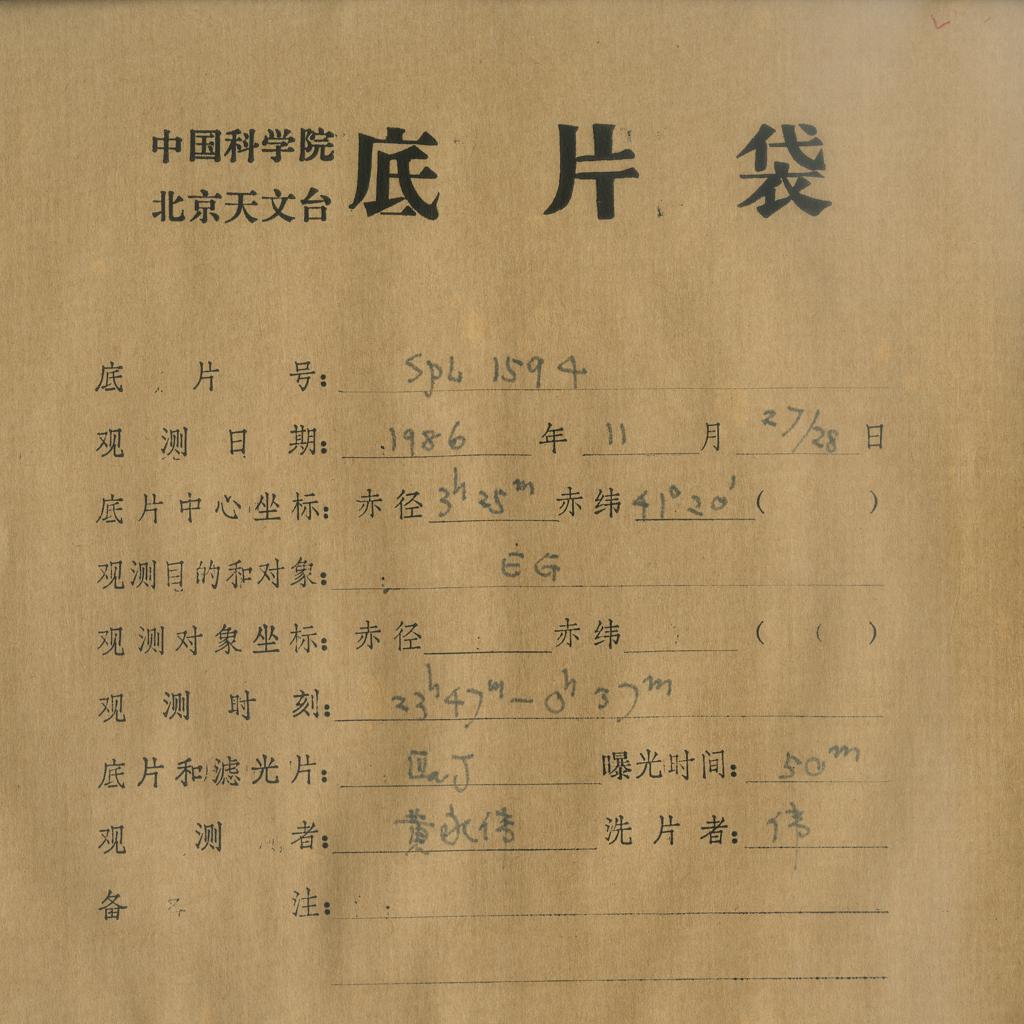 中国科学院
北京天文台
底片袋
底片号: SpL 1594
观测日期: 1986 年 11 月 27/28 日
底片中心坐标: 赤径 3h 25m 赤纬 41° 20' ( )
观测目的和对象: EG
观测对象坐标: 赤径 赤纬 ( )
观测时刻: 23h 47m — 0h 37m
底片和滤光片: ⅢaJ 曝光时间: 50m
观测者: 黄永伟 洗片者: 伟
备注: